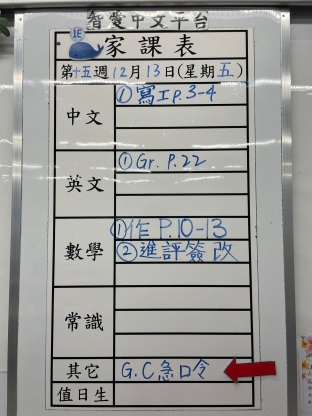 智愛中文平台
1E
家課表
第十五週12月13日(星期五)
中文
①寫工p.3-4
英文
①Gr. P.22
數學
①作 P.10-13
②進評簽改
常識
其它
G.C急口令
值日生